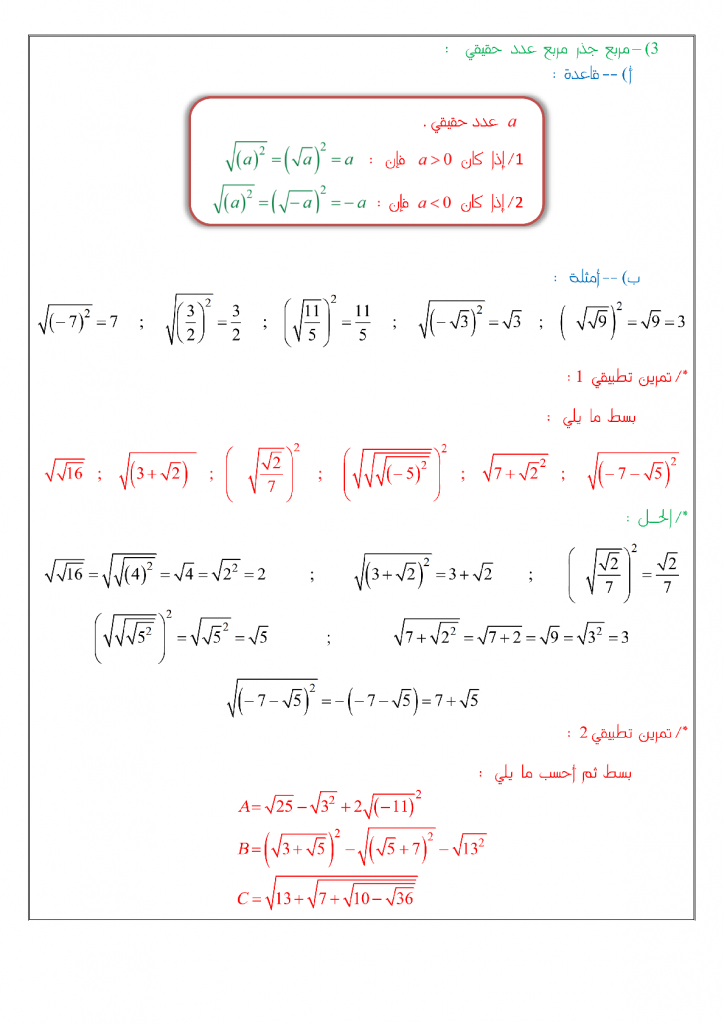 3)–مربع جذر مربع عدد حقيقي :
أ) -- قاعدة :
a عدد حقيقي .
1/ إذا كان a > 0 فإن : √(a)² = (√a)² = a
2/ إذا كان a < 0 فإن : √(a)² = (√−a)² = −a
ب) -- أمثلة :
√(−7)² = 7 ; √(3/2)² = 3/2 ; (√(11/5))² = 11/5 ; √(−√3)² = √3 ; (√√9)² = √9 = 3
*/ تمرين تطبيقي 1 :
بسط ما يلي :
√√16 ; √(3+√2) ; (√(√2/7))² ; (√√√(−5)²)² ; √(7+√2²) ; √(−7−√5)²
*/ الحــل :
√√16 = √√(4)² = √4 = √2² = 2 ; √(3+√2)² = 3+√2 ; (√(√2/7))² = √2/7
(√√√5²)² = √√5² = √5 ; √(7+√2²) = √(7+2) = √9 = √3² = 3
√(−7−√5)² = −(−7−√5) = 7+√5
*/ تمرين تطبيقي 2 :
بسط ثم إحسب ما يلي :
A = √25 − √3² + 2√(−11)²
B = (√(3+√5))² − √(√5+7)² − √13²
C = √(13+√(7+√(10−√36)))